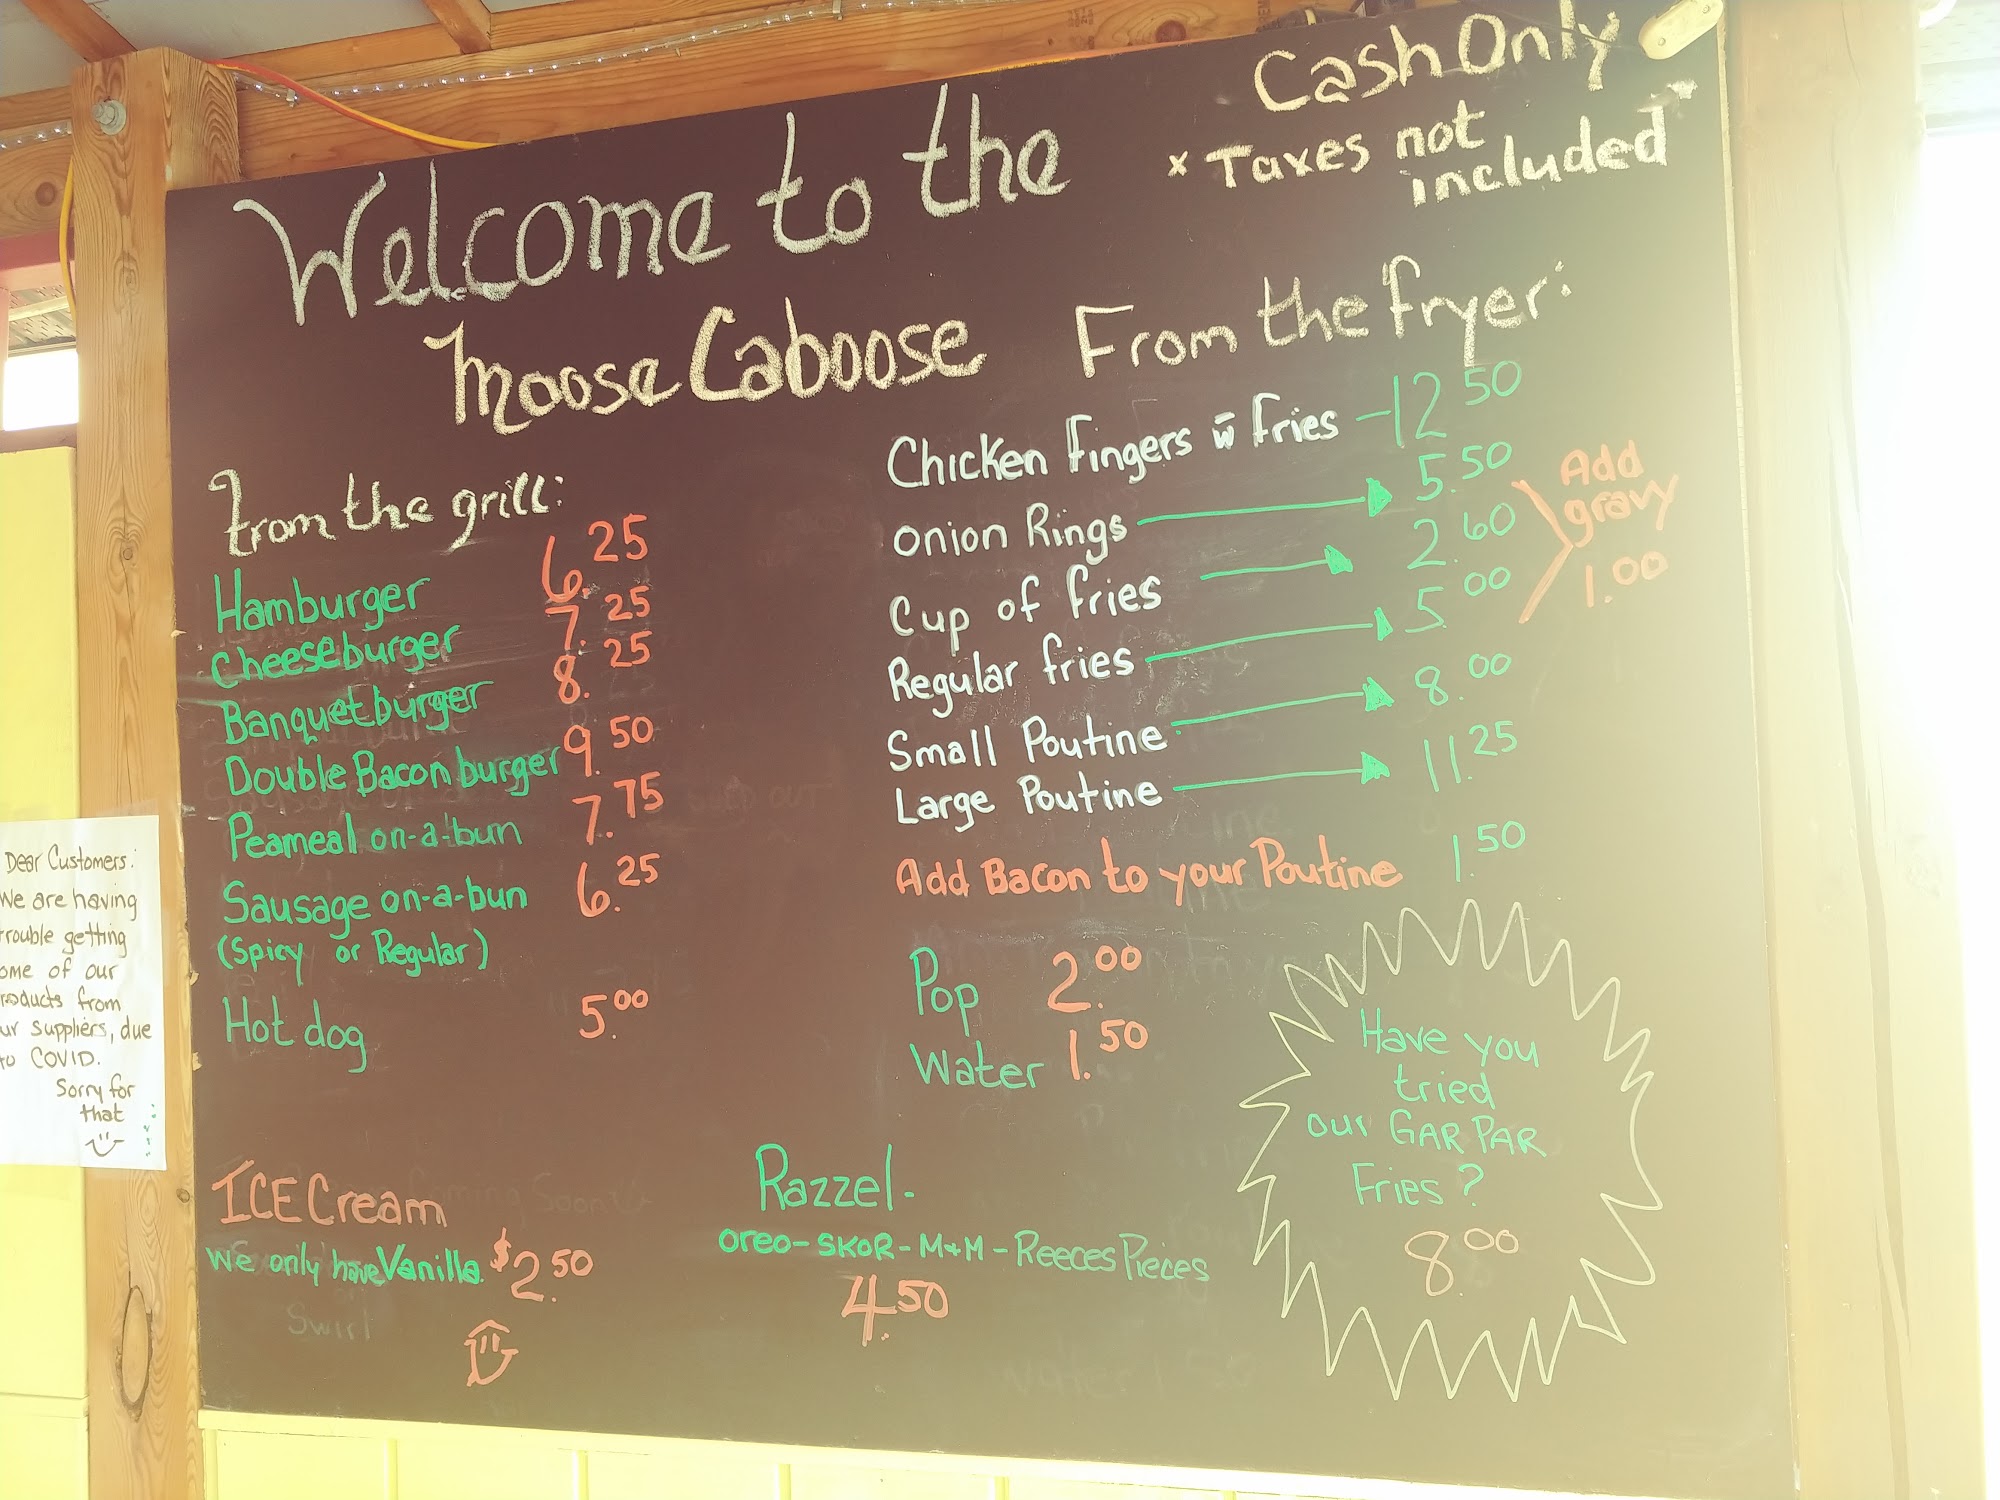 Cash Only
× Taxes not
included
Welcome to the
Moose Caboose
From the grill:
Hamburger 6.25
Cheeseburger 7.25
Banquetburger 8.25
Double Bacon burger 9.50
Peameal on-a-bun 7.75
Sausage on-a-bun 6.25
(Spicy or Regular)
Hot dog 5.00
From the fryer:
Chicken Fingers w Fries - 12.50
Onion Rings 5.50
Cup of fries 2.60
Regular fries 5.00
Add
gravy
1.00
Small Poutine 8.00
Large Poutine 11.25
Add Bacon to your Poutine 1.50
Pop 2.00
Water 1.50
Have you
tried
our GAR PAR
Fries?
8.00
ICE Cream
We only have Vanilla. $2.50
Swirl
Razzel-
Oreo-SKOR-M+M-Reeces Pieces
4.50
Dear Customers:
We are having
rouble getting
ome of our
roducts from
ur suppliers, due
to COVID.
Sorry for
that